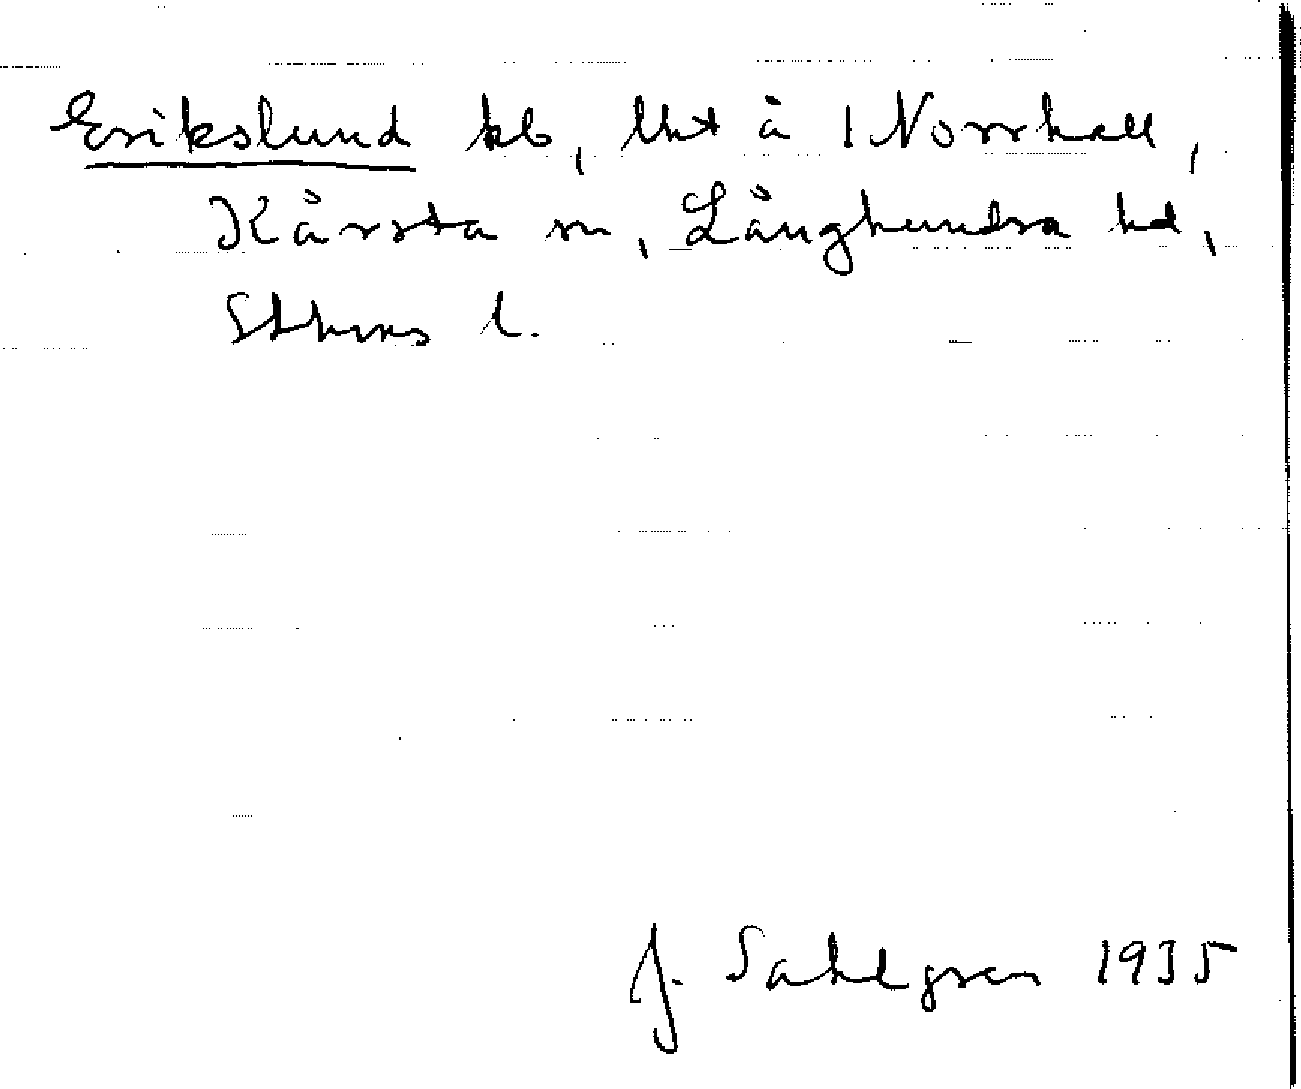 Erikslund kb, lht å 1 Norrhall,
Kårsta sn, Långhundra hd,
Sthms l.
J. Sahlgren 1935